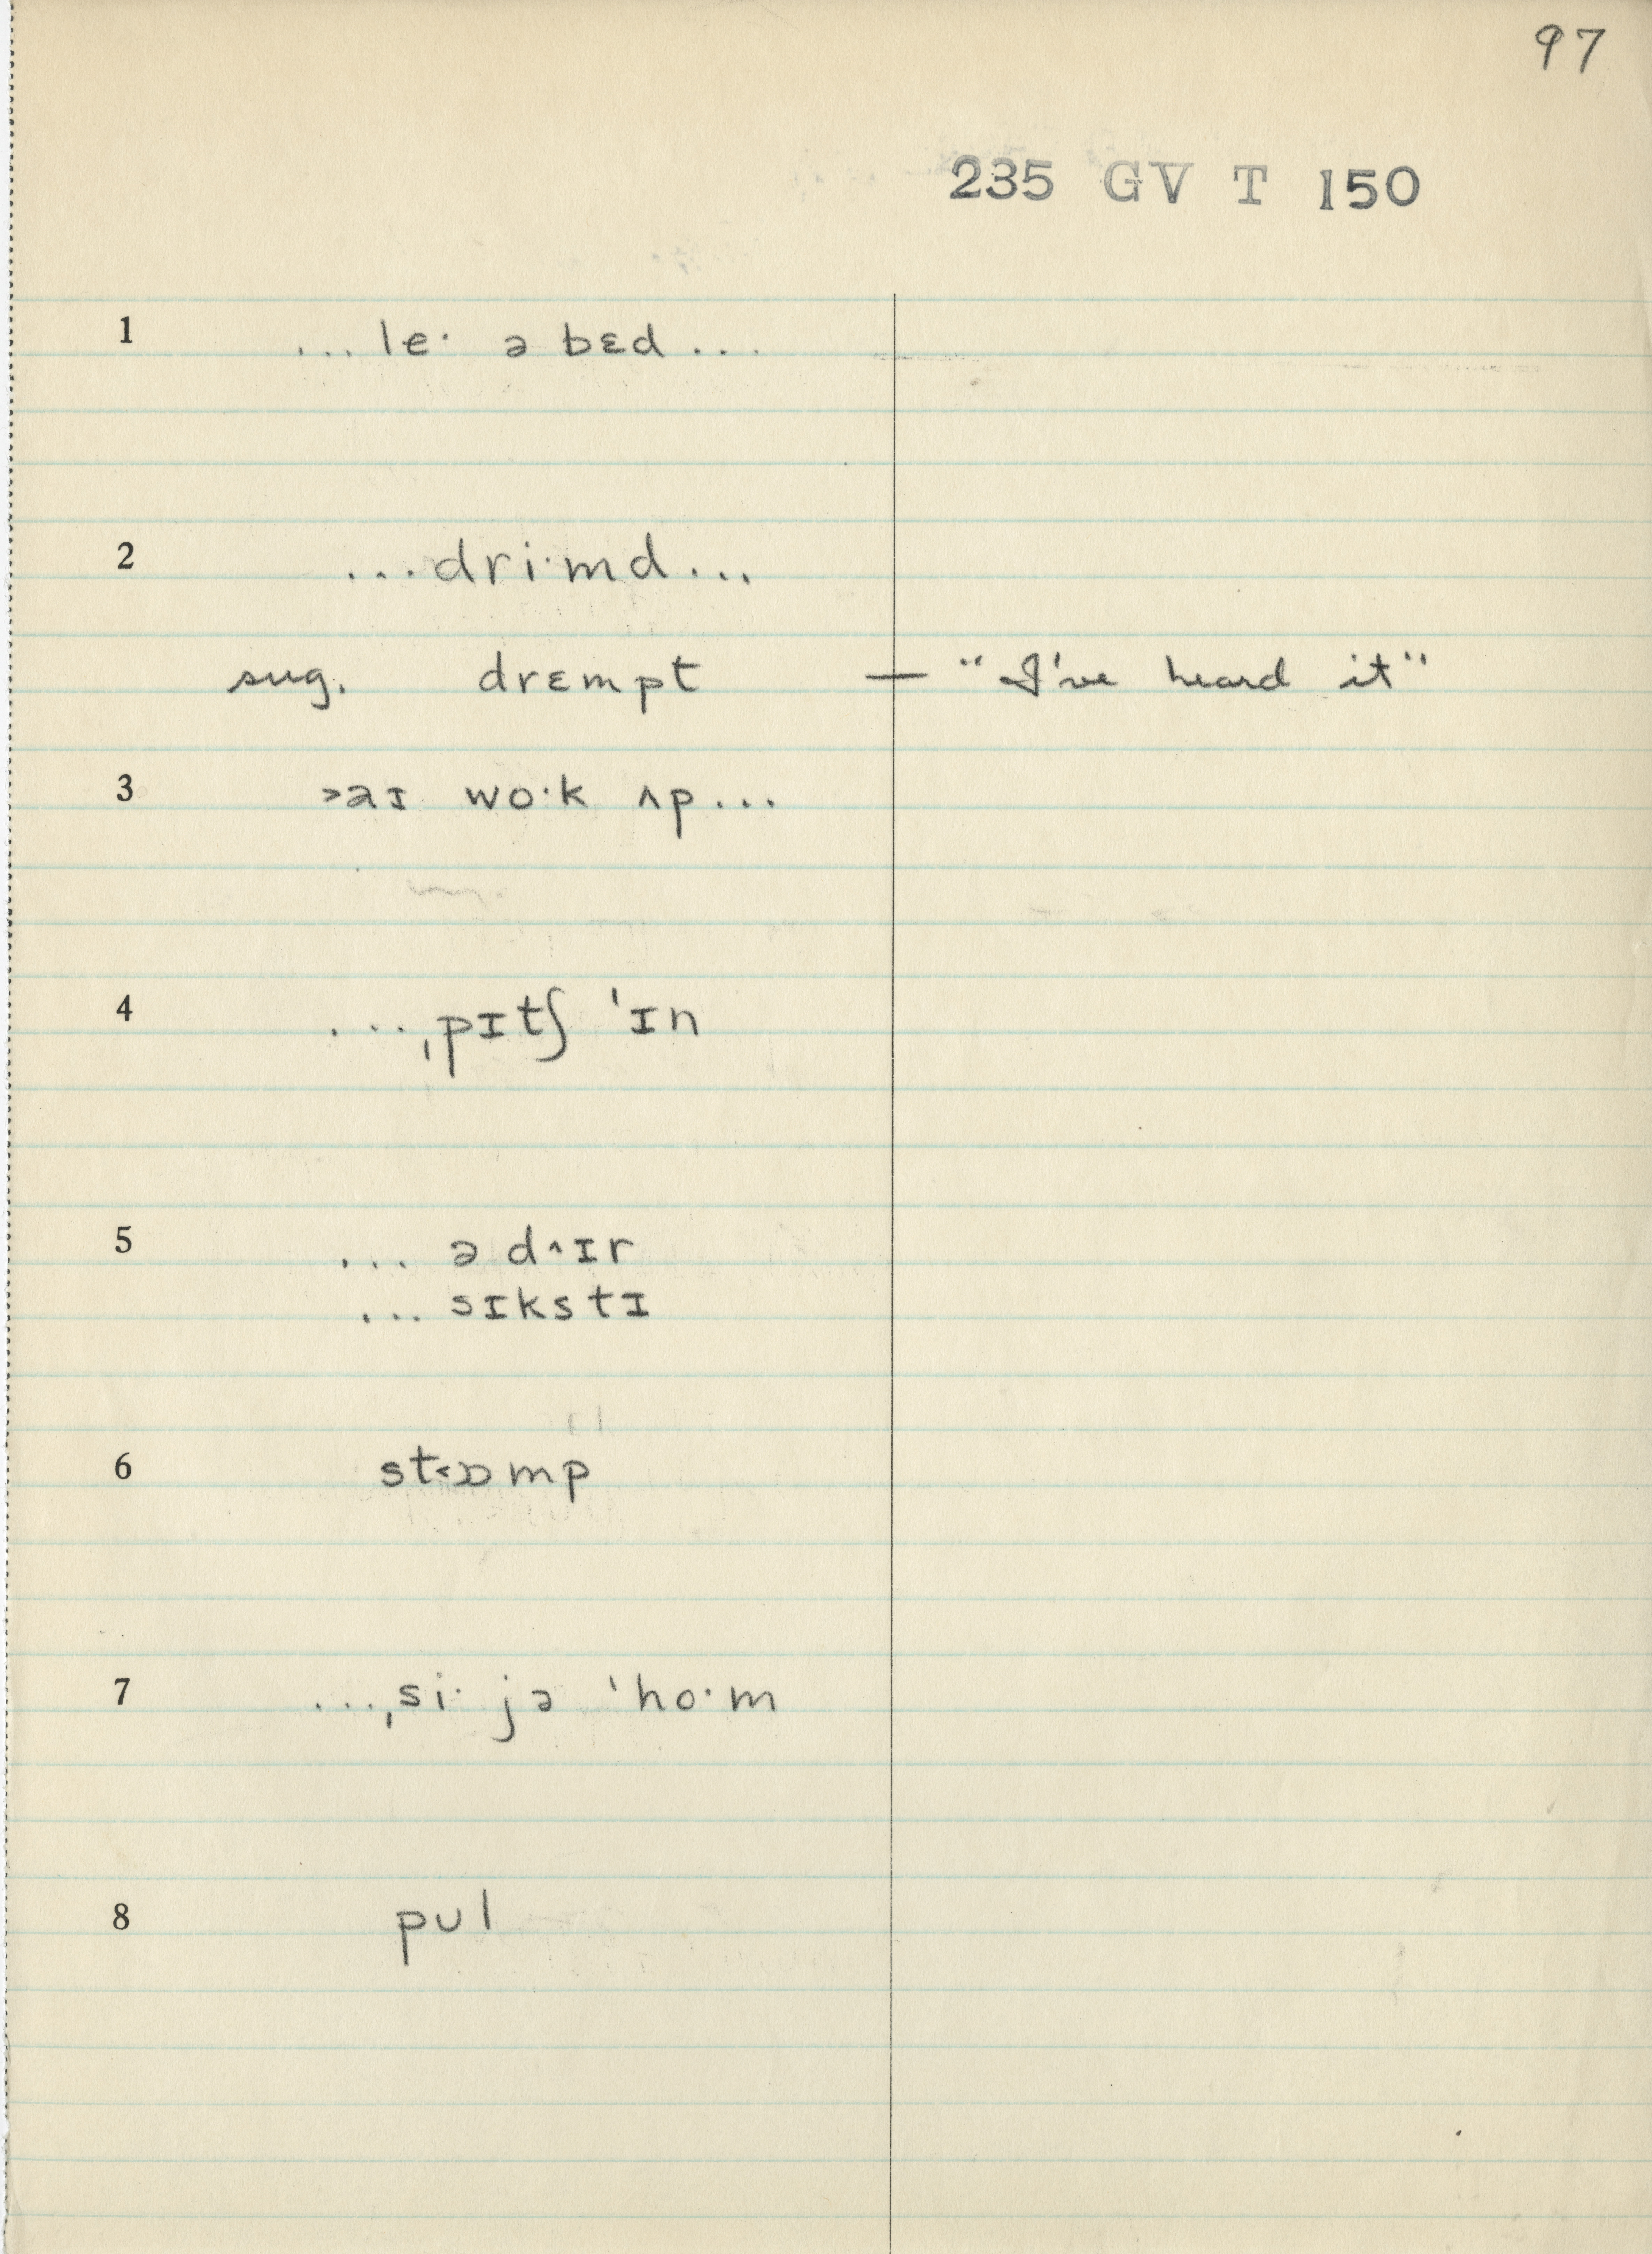 97
235 GV T 150
1 ... leˑ ə bɛd ...
2 ...driˑmd...
sug. drɛmpt — "I've heard it"
3 ˃aɪ woˑk ʌp...
4 ...ˌpɪtʃ ˈɪn
5 ... ə d˄ɪr
... sɪkstɪ
6 st˂ɒmp
7 ...ˌsiˑ jə ˈhoˑm
8 pul